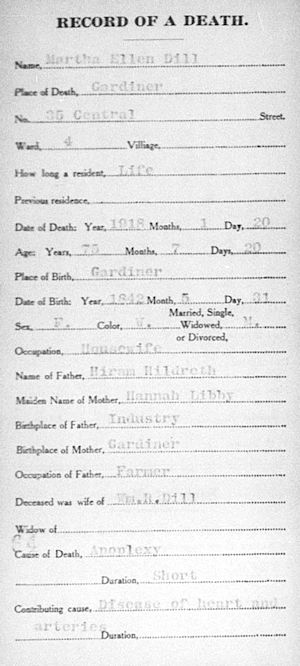 RECORD OF A DEATH.
Name, Martha Ellen Dill
Place of Death, Gardiner
No. 35 Central Street.
Ward, 4 Villiage,
How long a resident, Life
Previous residence,
Date of Death: Year, 1918 Months, 1 Day, 20
Age: Years, 75 Months, 7 Days, 20
Place of Birth, Gardiner
Date of Birth: Year, 1842 Month, 5 Day, 31
Sex, F. Color, W. Married, Single, Widowed, or Divorced, M.
Occupation, Housewife
Name of Father, Hiram Hildreth
Maiden Name of Mother, Hannah Libby
Birthplace of Father, Industry
Birthplace of Mother, Gardiner
Occupation of Father, Farmer
Deceased was wife of Wm.R.Dill
Widow of
64
Cause of Death, Apoplexy
Duration, Short
Contributing cause, Disease of heart and
arteries Duration,